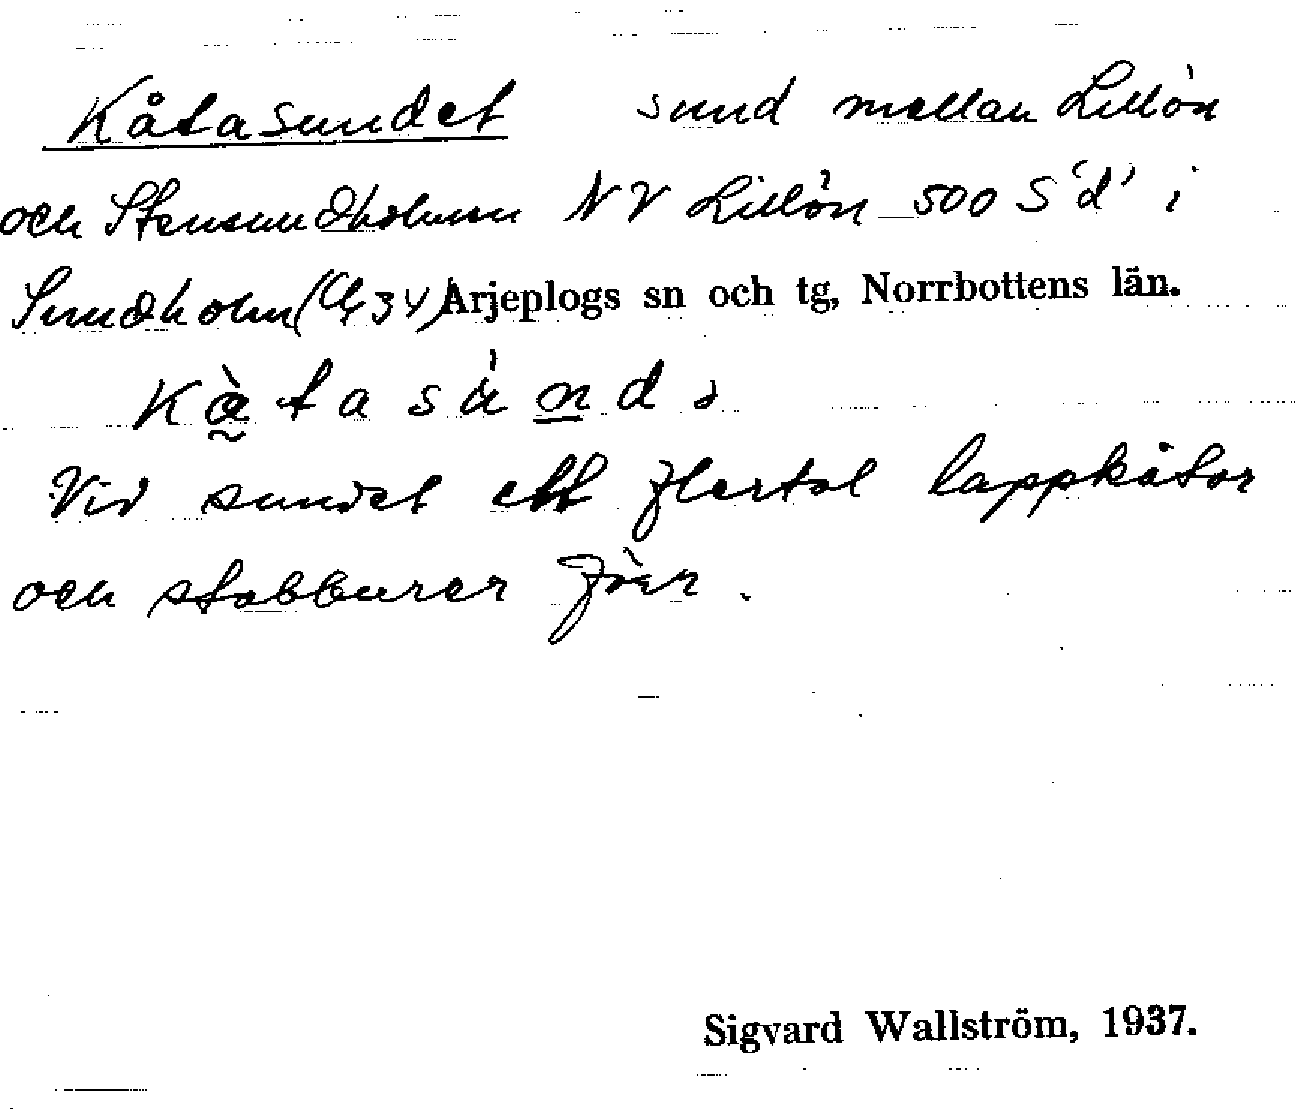 Kåtasundet sund mellan Lillön
och Stensundholmen NV Lillön 500 S 'd' i
Sundholm Arjeplogs sn och tg, Norrbottens län.
Vid sundet ett flertal lappkåtor
och stabburer förr.
Sigvard Wallström, 1937.